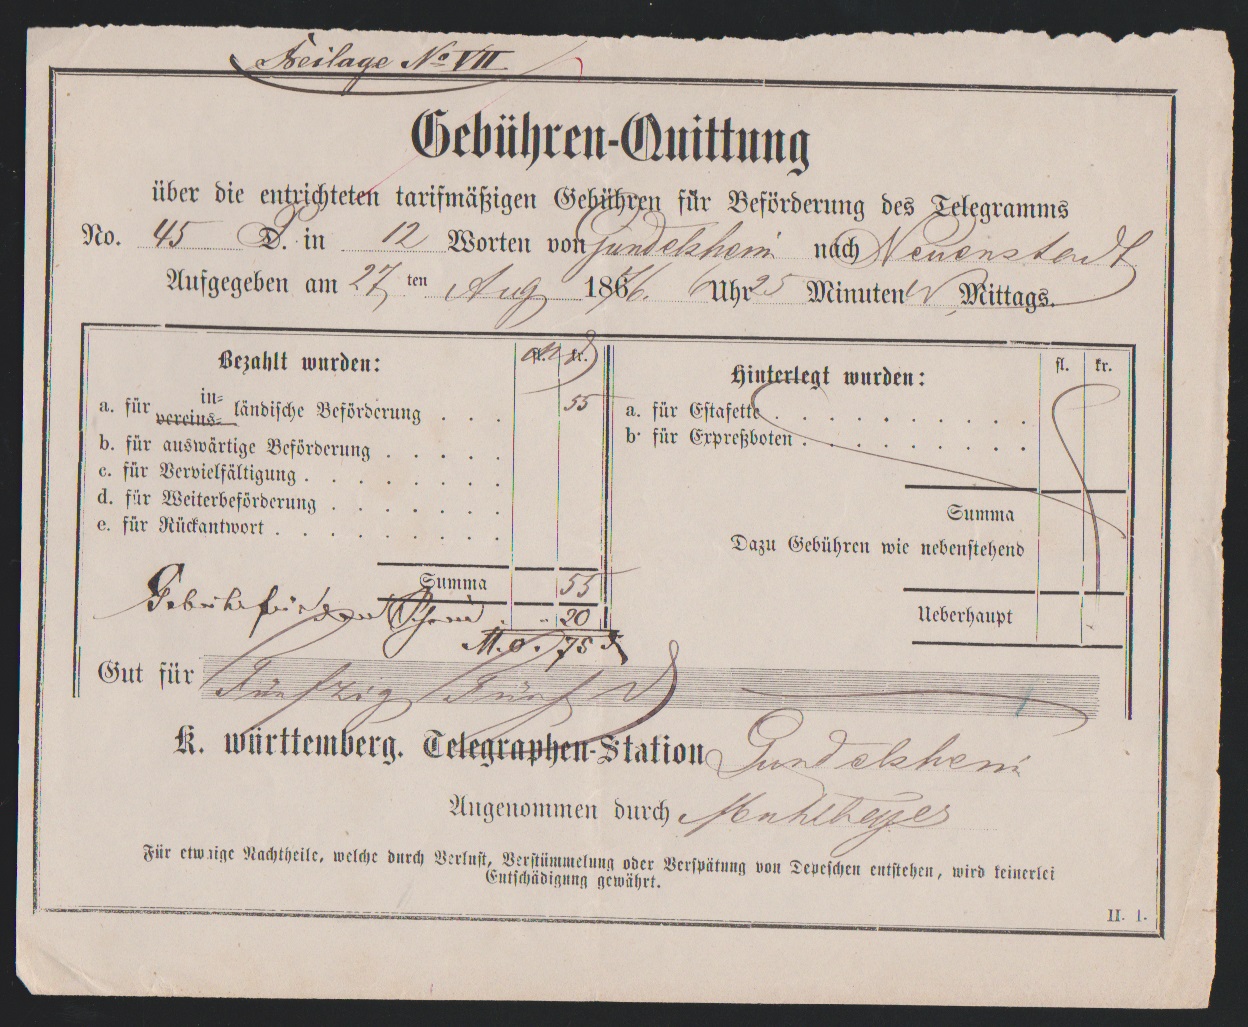 Beilage No VII
Gebühren-Quittung
über die entrichteten tarifmäßigen Gebühren für Beförderung des Telegramms
No. 45 D. in 12 Worten von Gundelsheim nach Neuenstadt
Aufgegeben am 27 ten Aug 1876. 6 Uhr 25 Minuten N. Mittags.
Bezahlt wurden: fl. kr.
a. für in= vereins= ländische Beförderung . . . 55
b. für auswärtige Beförderung . . . . .
c. für Vervielfältigung . . . . . . . .
d. für Weiterbeförderung . . . . . . .
e. für Rückantwort . . . . . . . . .
Summa 55
Gebühr für den Schein 20
M. 0. 75
Hinterlegt wurden: fl. kr.
a. für Estafette . . . . . . . . . .
b. für Expreßboten . . . . . . . . .
Summa
Dazu Gebühren wie nebenstehend
Ueberhaupt
Gut für Fünfzig Fünf
K. württemberg. Telegraphen-Station Gundelsheim
Angenommen durch
Für etwaige Nachtheile, welche durch Verlust, Verstümmelung oder Verspätung von Depeschen entstehen, wird keinerlei
Entschädigung gewährt.
II. 1.